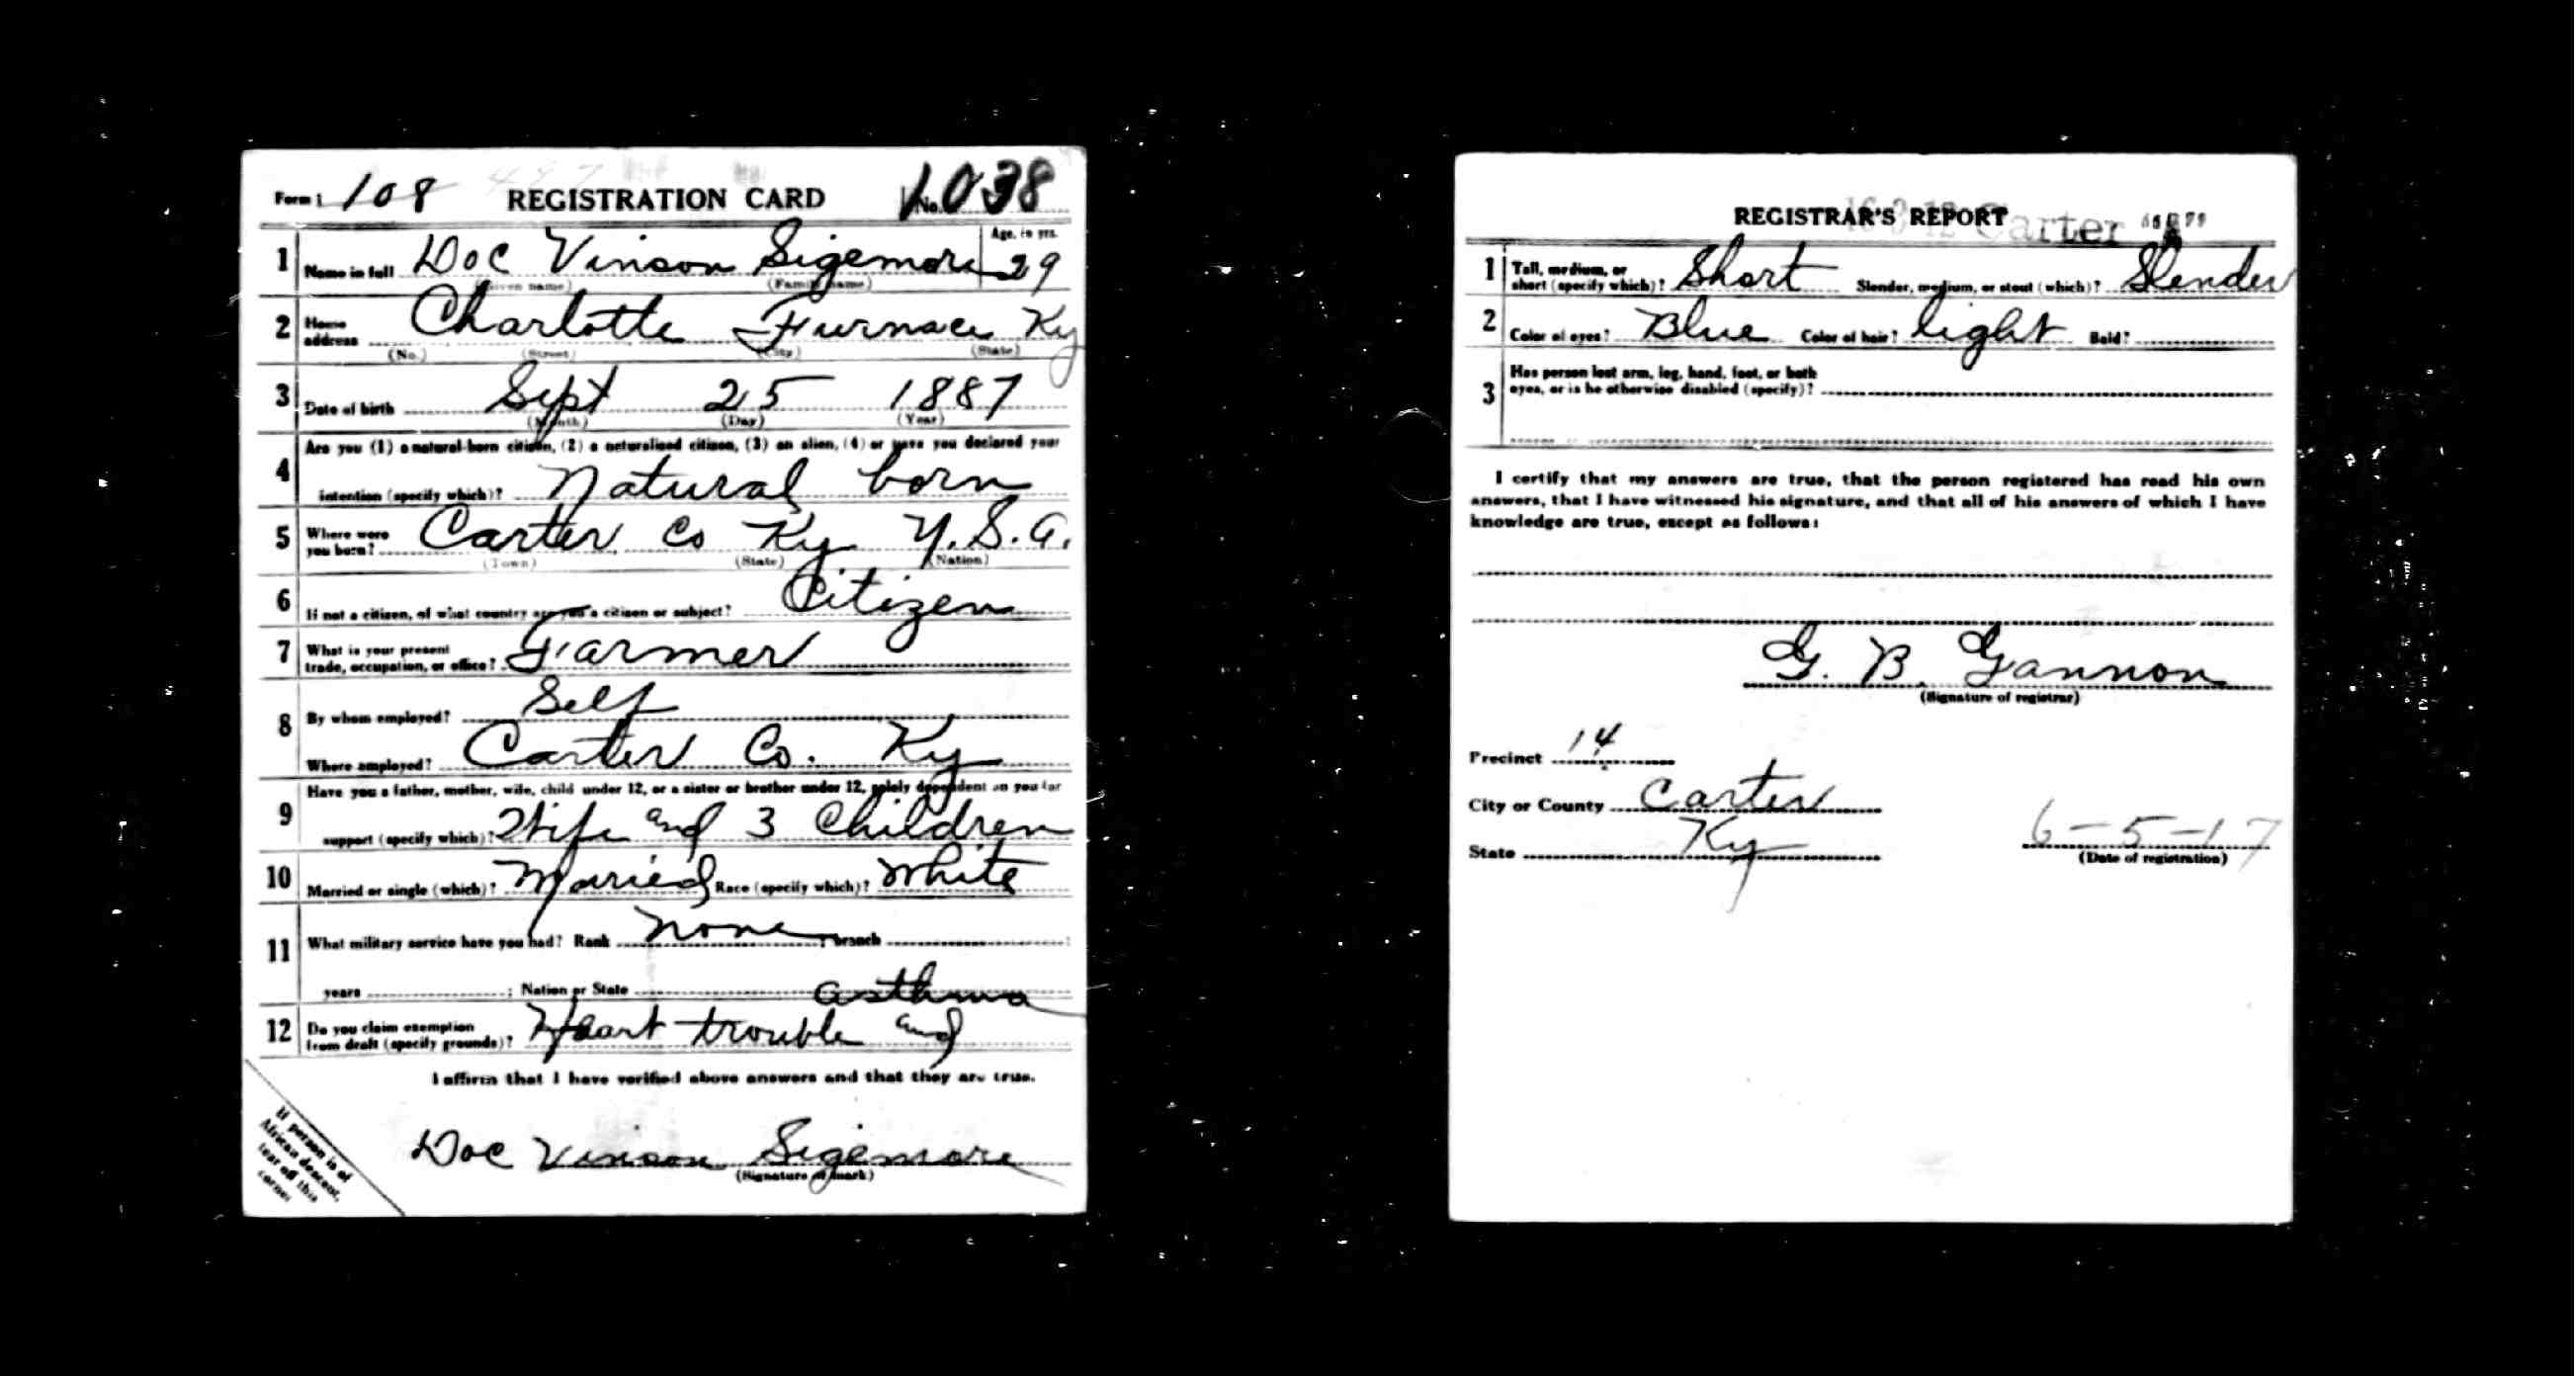 Form 1 108 REGISTRATION CARD No. 1038
1 Name in full Doc Vinson Sigemore Age, in yrs. 29
(Given name) (Family name)
2 Home address Charlotte Furnace Ky
(No.) (Street) (City) (State)
3 Date of birth Sept 25 1887
(Month) (Day) (Year)
4 Are you (1) a natural-born citizen, (2) a naturalized citizen, (3) an alien, (4) or have you declared your
intention (specify which)? Natural born
5 Where were you born? Carter Co Ky U.S.A.
(Town) (State) (Nation)
6 If not a citizen, of what country are you a citizen or subject? Citizen
7 What is your present
trade, occupation, or office? Farmer
8 By whom employed? Self
Where employed? Carter Co. Ky
9 Have you a father, mother, wife, child under 12, or a sister or brother under 12, solely dependent on you for
support (specify which)? Wife and 3 Children
10 Married or single (which)? Maried Race (specify which)? White
11 What military service have you had? Rank None ; branch
years ; Nation or State
asthma
12 Do you claim exemption
from draft (specify grounds)? Heart trouble and
I affirm that I have verified above answers and that they are true.
Doc Vinson Sigemore
(Signature or mark)
If person is of
African descent,
tear off this
corner
REGISTRAR'S REPORT Carter
1 Tall, medium, or
short (specify which)? Short Slender, medium, or stout (which)? Slender
2 Color of eyes? Blue Color of hair? light Bald?
3 Has person lost arm, leg, hand, foot, or both
eyes, or is he otherwise disabled (specify)?
I certify that my answers are true, that the person registered has read his own
answers, that I have witnessed his signature, and that all of his answers of which I have
knowledge are true, except as follows:
G. B. Gannon
(Signature of registrar)
Precinct 14
City or County Carter
State Ky
6-5-17
(Date of registration)